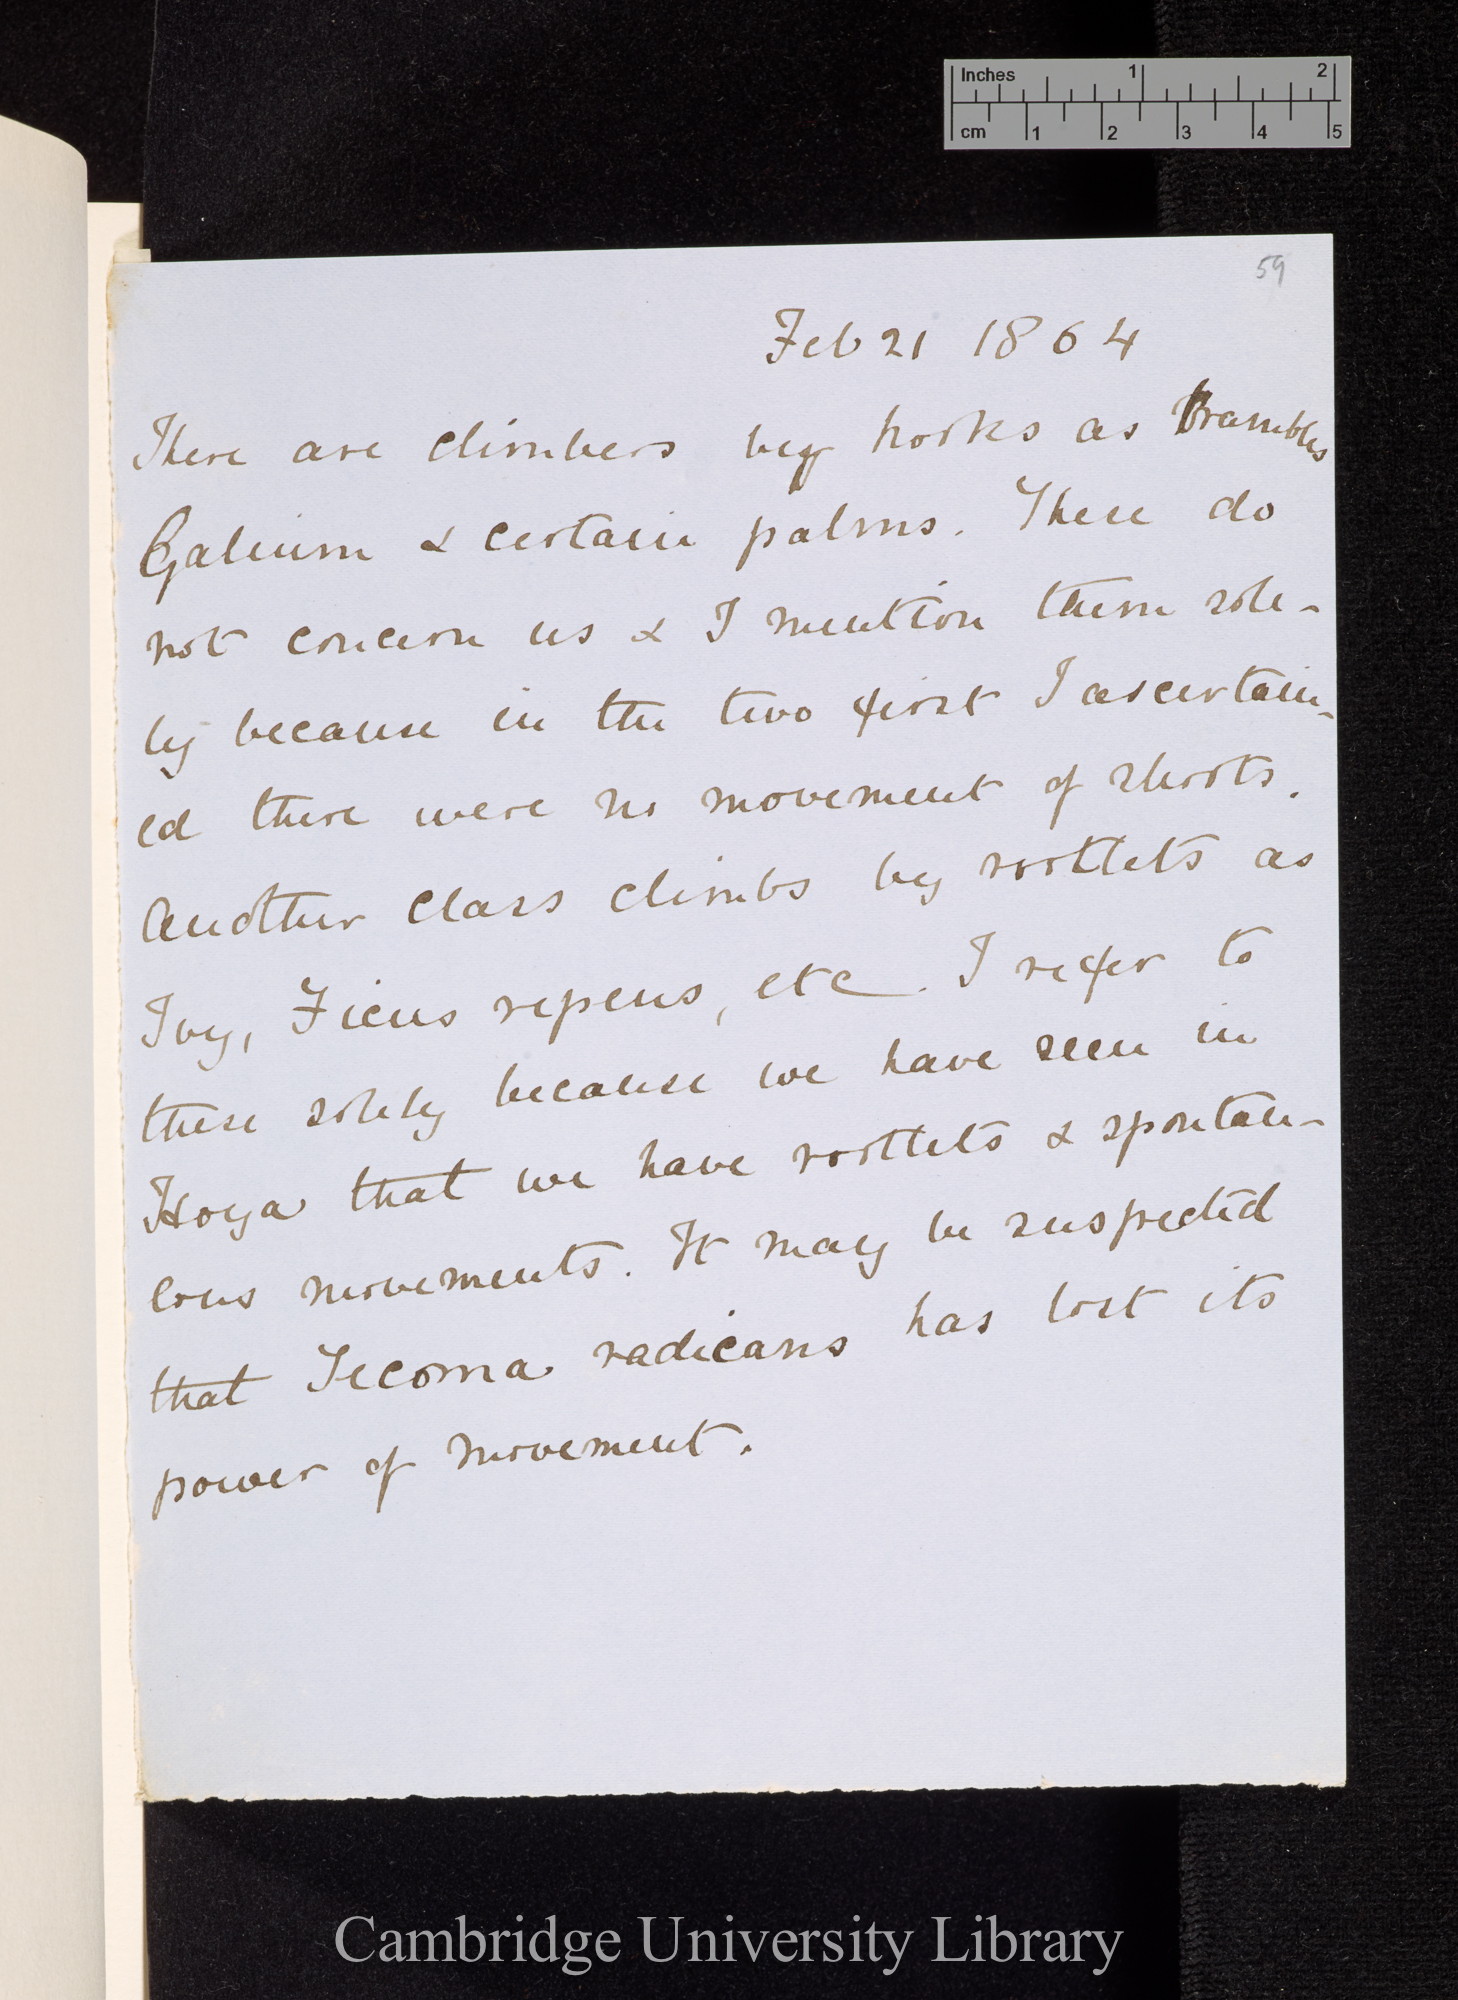 Inches 1 2
cm 1 2 3 4 5
59
Feb 21 1864
There are climbers by hooks as Brambles
Galium & certain palms. These do
not concern us & I mention them sole-
ly because in the two first I ascertain-
ed there were no movement of shoots.
Another class climbs by rootlets as
Ivy, Ficus repens, etc. I refer to
these solely because we have seen in
Hoya that we have rootlets & spontan-
eous movements. It may be suspected
that Tecoma radicans has lost its
power of movement.
Cambridge University Library